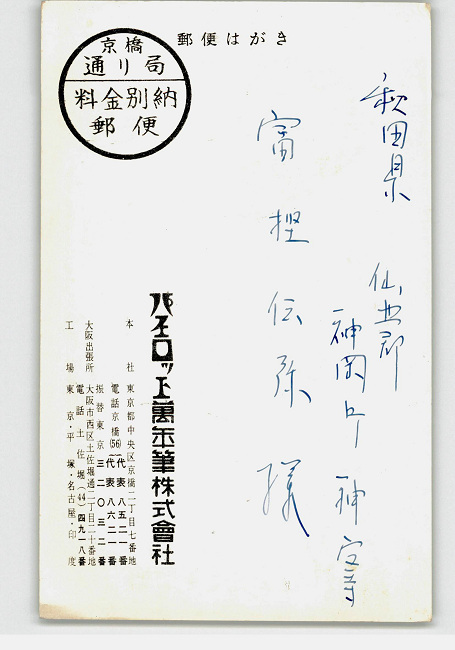 郵便はがき
京橋
通り局
料金別納
郵便
秋田県
仙北郡
神岡町 神宮寺
富樫伝弥様
パイロット萬年筆株式會社
本社 東京都中央区京橋二丁目七番地
電話京橋(56) 代表八五二一番
代表八六二一番
振替東京三二〇三二番
大阪出張所 大阪市西区土佐堀通二丁目二十番地
電話土佐堀(44)四九一八番
工場 東京・平塚・名古屋・印度